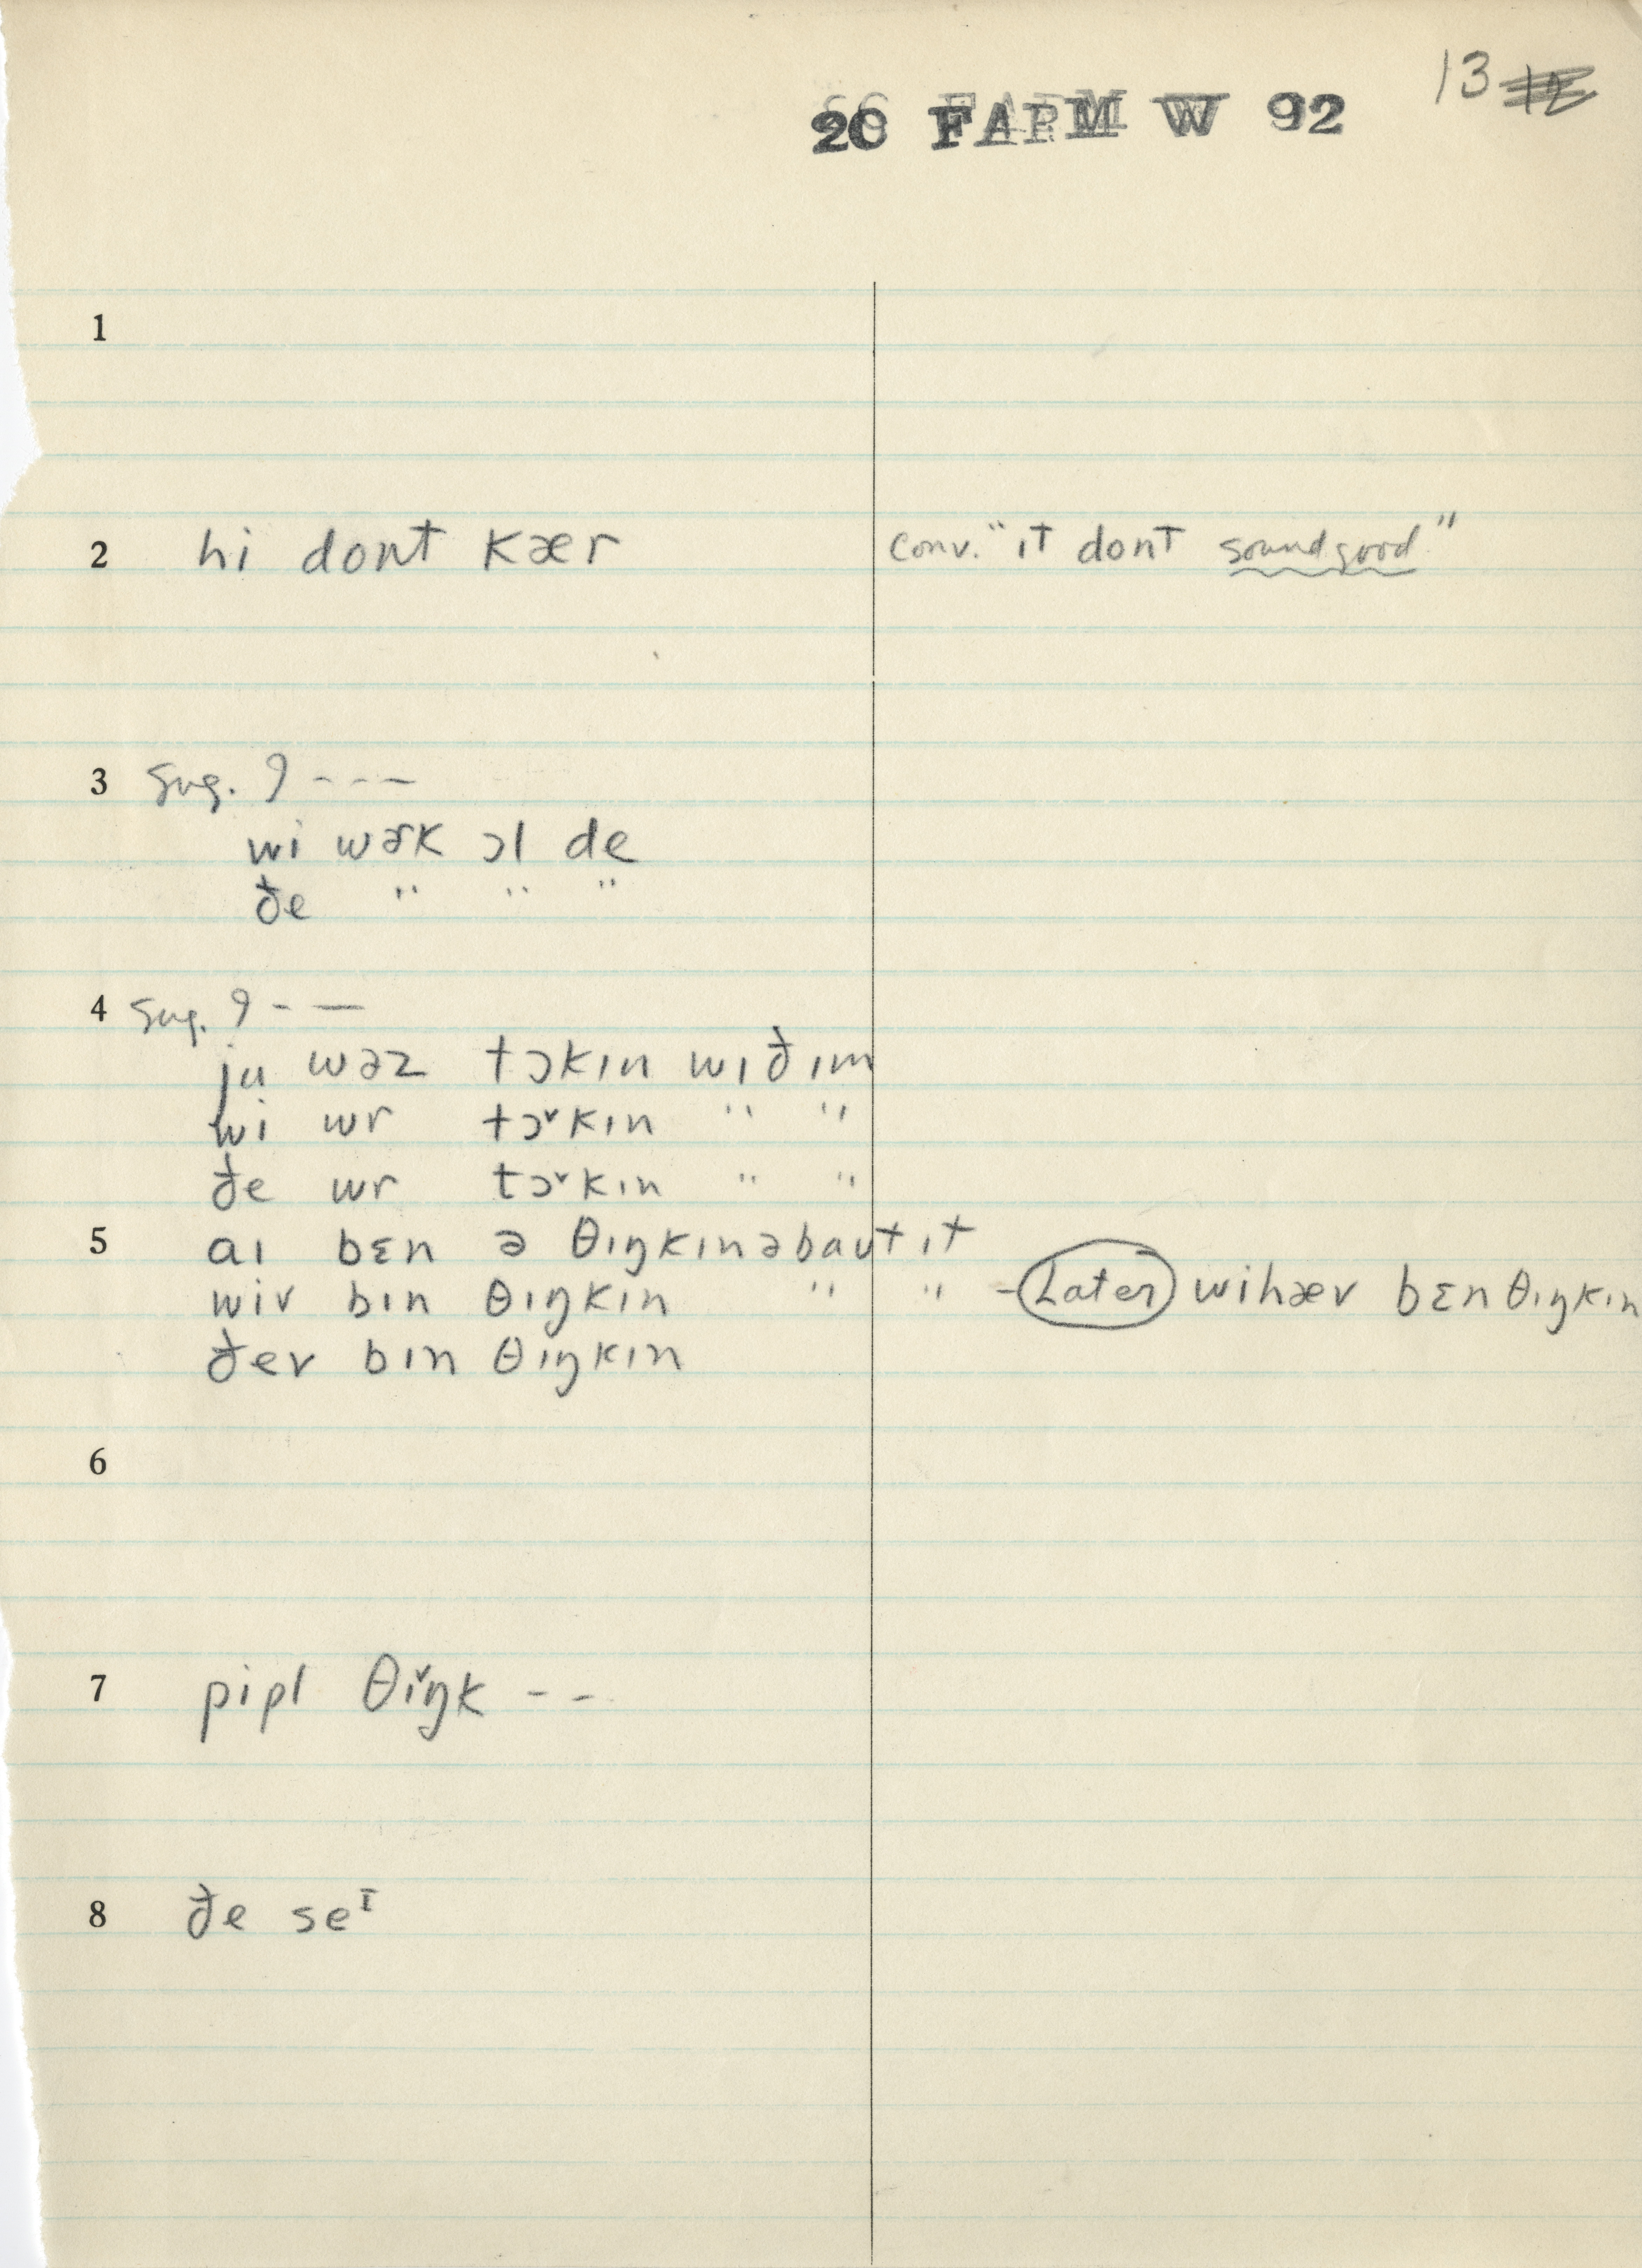 13
20 FARM W 92
1
2 hi dont kær conv. "it dont sound good"
3 Sug. 9 - - -
wi wɚk ɔl de
ðe " " "
4 Sug. 9 - —
ju wəz tɔkɪn wɪðɪm
wi wr tɔˇkɪn " "
ðe wr tɔˇkɪn " "
5 aɪ bɛn ə θɪŋkɪnəbaʊt ɪt
wiv bɪn θɪŋkɪn " " - Later wihæv bɛn θɪŋkɪn
ðev bɪn θɪŋkɪn
6
7 pipl θiˇŋk - -
8 ðe seᶦ